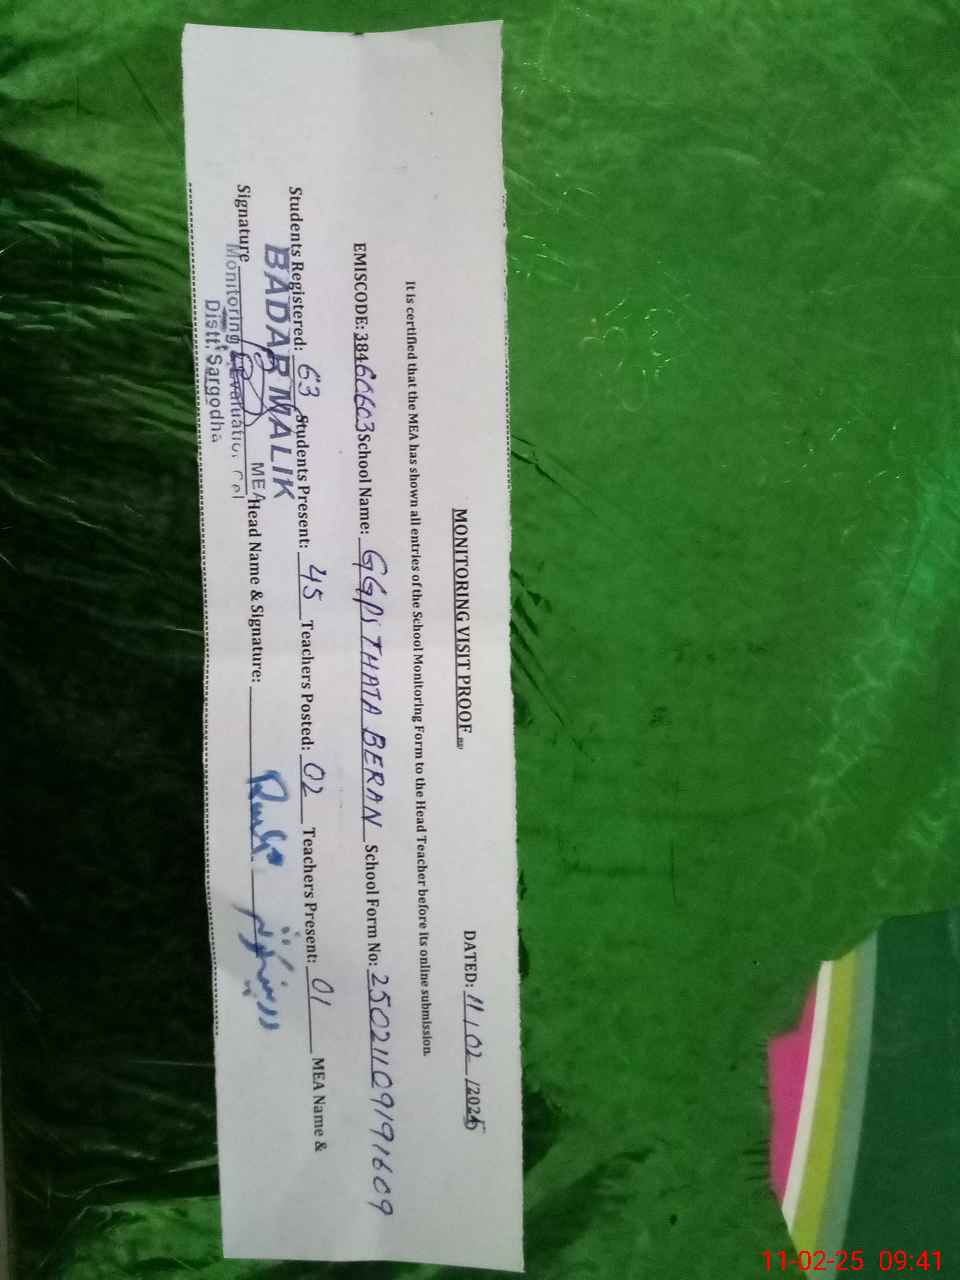 MONITORING VISIT PROOF
DATED: 11/02/2025
It is certified that the MEA has shown all entries of the School Monitoring Form to the Head Teacher before its online submission.
EMISCODE: 38460603 School Name: GGPS THATA BERAN School Form No: 25021109191609
Students Registered: 63 Students Present: 45 Teachers Posted: 02 Teachers Present: 01 MEA Name &
BADAR MALIK
MEA
Signature Head Name & Signature:
Monitoring & Evaluation Cel
Distt: Sargodha
11-02-25 09:41